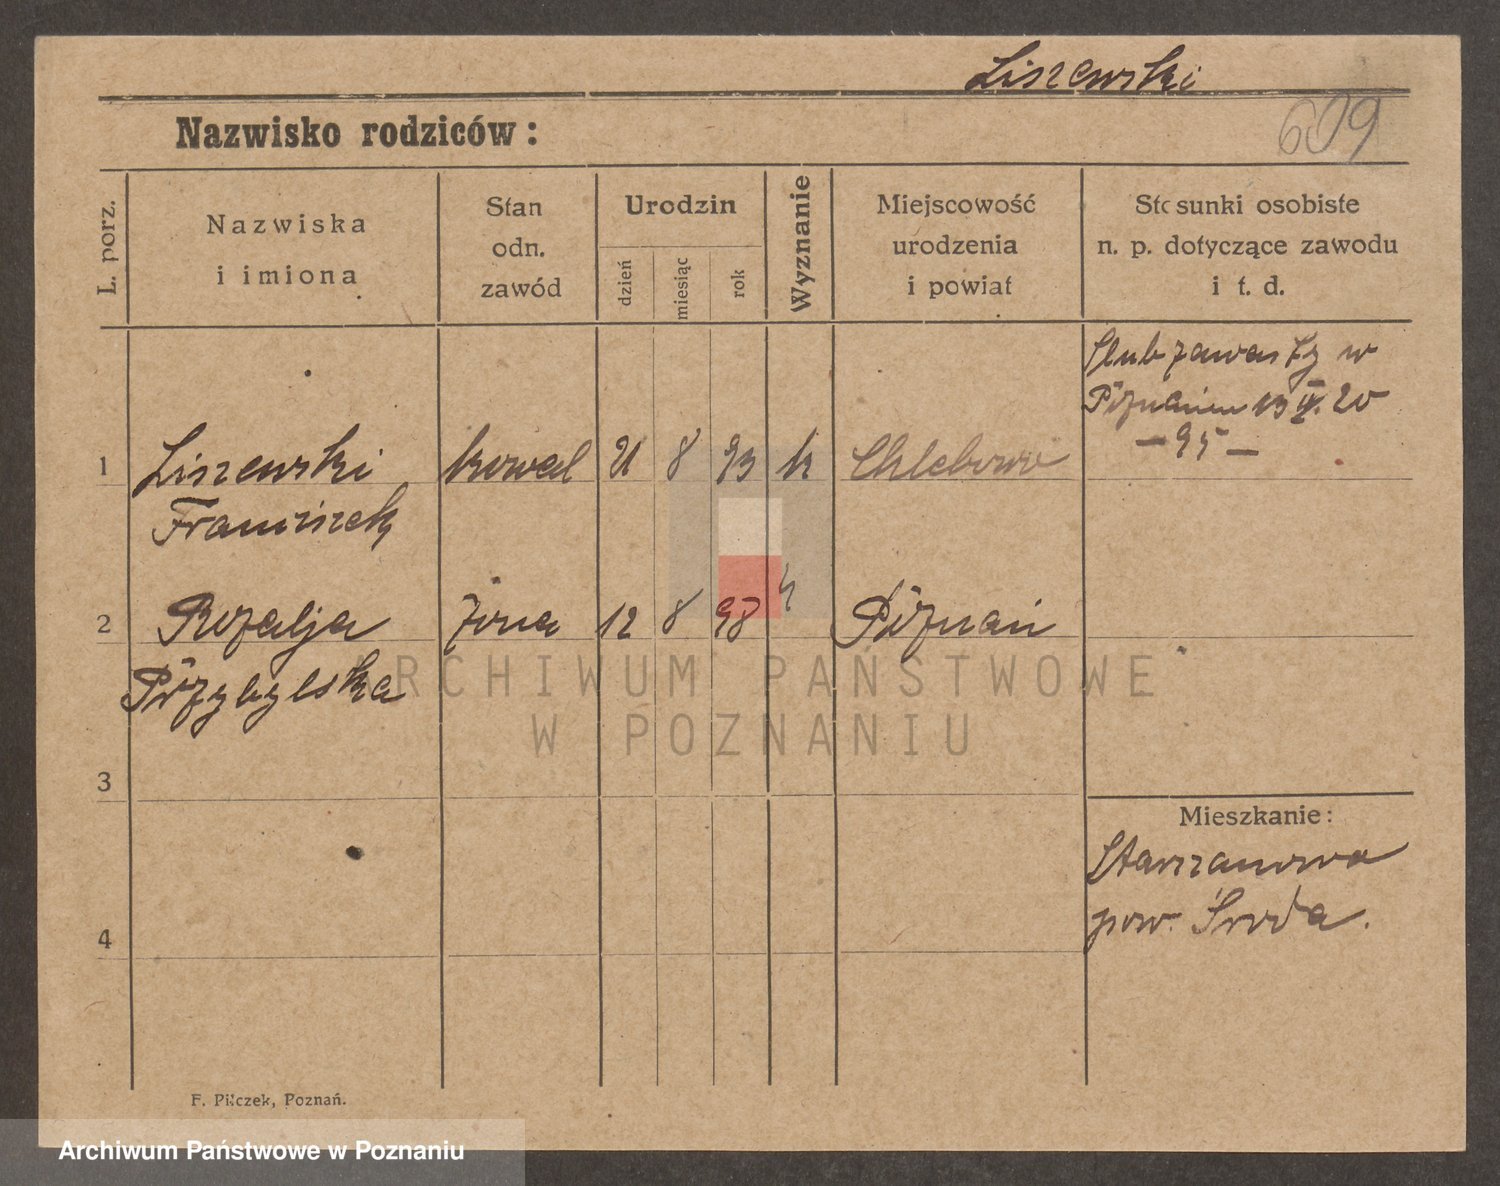 Liszewski
609
Nazwisko rodziców:
L. porz.
Nazwiska
i imiona
Stan
odn.
zawód
Urodzin
dzień
miesiąc
rok
Wyznanie
Miejscowość
urodzenia
i powiat
Stosunki osobiste
n. p. dotyczące zawodu
i t. d.
Ślub zawarty w
Poznaniu 13 IV. 20
— 95 —
1 Liszewski kowal 21 8 93 k Chlebowo
Franciszek
2 Rozalja żona 12 8 98 k Poznań
Przybylska
3
Mieszkanie:
Starczanowo
pow. Środa.
4
F. Pilczek, Poznań.
ARCHIWUM PAŃSTWOWE
W POZNANIU
Archiwum Państwowe w Poznaniu